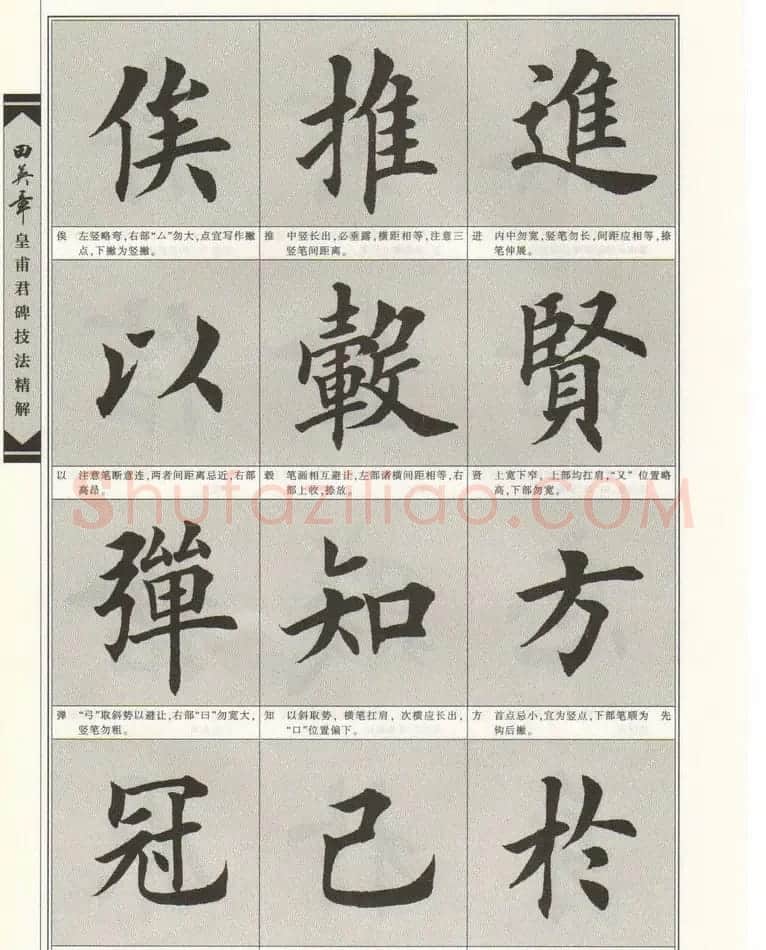 田英章
皇甫君碑技法精解
俟
推
進
俟 左竖略弯,右部“厶”勿大,点宜写作撇
点,下撇为竖撇。
推 中竖长出,必垂露,横距相等,注意三
竖笔间距离。
进 内中勿宽,竖笔勿长,间距应相等,捺
笔伸展。
以
轂
賢
以 注意笔断意连,两者间距离忌近,右部
高昂。
毂 笔画相互避让,左部诸横间距相等,右
部上收,捺放。
贤 上宽下窄,上部均扛肩,“又”位置略
高,下部勿宽。
Shufaziliao.COM
彈
知
方
弹 “弓”取斜势以避让,右部“曰”勿宽大,
竖笔勿粗。
知 以斜取势,横笔扛肩,次横应长出,
“口”位置偏下。
方 首点忌小,宜为竖点,下部笔顺为 先
钩后撇。
冠
己
於